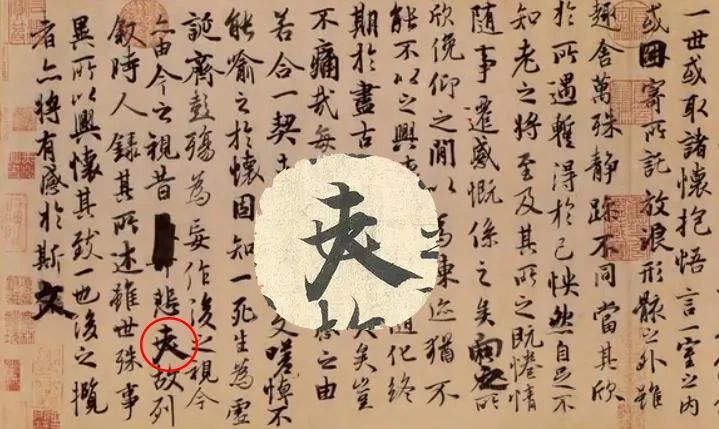 一世或取諸懷抱悟言一室之內
或因寄所託放浪形骸之外雖
趣舍萬殊靜躁不同當其欣
於所遇蹔得於己怏然自足不
知老之將至及其所之既惓情
隨事遷感慨係之矣向之所
欣俛仰之閒以為陳迹猶不
能不以之興隨化終
期於盡古矣豈
不痛哉每之由
若合一契文嗟悼不
能喻之於懷固知一死生為虛
誕齊彭殤為妄作後之視今
亦由今之視昔悲夫故列
叙時人錄其所述雖世殊事
異所以興懷其致一也後之攬
者亦將有感於斯文
夫